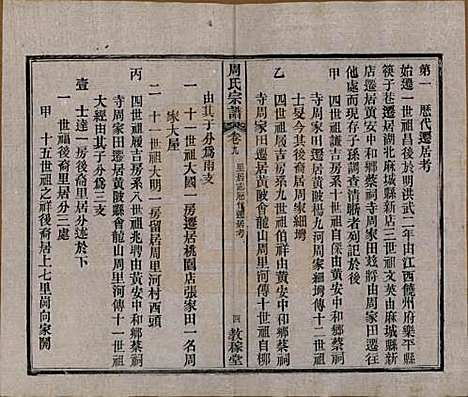 第一 歷代遷居考
始遷一世祖昌後於明洪武二年由江西饒州府樂平縣
筷子巷遷居湖北麻城縣新店二三世祖文英由麻城縣新
店遷居黃安中和鄉蔡祠寺周家田
他處而現存子孫調查清晰者列記於後
甲 四世祖謙吉房系十世祖自傑由黃安中和鄉蔡祠
寺周家田遷居黃陂楊九河周家細塆
士夐今其後裔居周家細塆
乙 四世祖履吉房系九世祖伯與由黃安中和鄉蔡祠
寺周家田遷居黃陂縣會龍山周里河傳十世祖自柳
由其子分爲兩支
一 十一世祖大國一房遷居桃園店張家田一名周
家大屋
二 十一世祖大明一房留居周里河村西頭
丙 四世祖履吉房系八世祖兆聘由黃安中和鄉蔡祠
寺周家田遷居黃陂縣會龍山周里河傳十一世祖
大經由其子分爲三支
壹 士達一房後裔里居分述於下
一 世福後裔居分三處
甲 十五世祖之祥後裔居上七里崗向家開
周氏宗譜
卷九
四 教稼堂